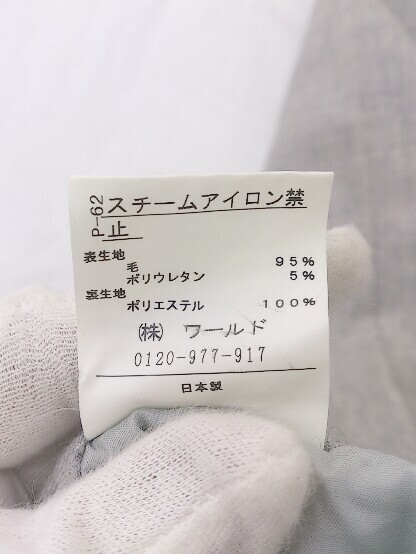 P-62
スチームアイロン禁
止
表生地
毛 95%
ポリウレタン 5%
裏生地
ポリエステル 100%
㈱ ワールド
0120-977-917
日本製